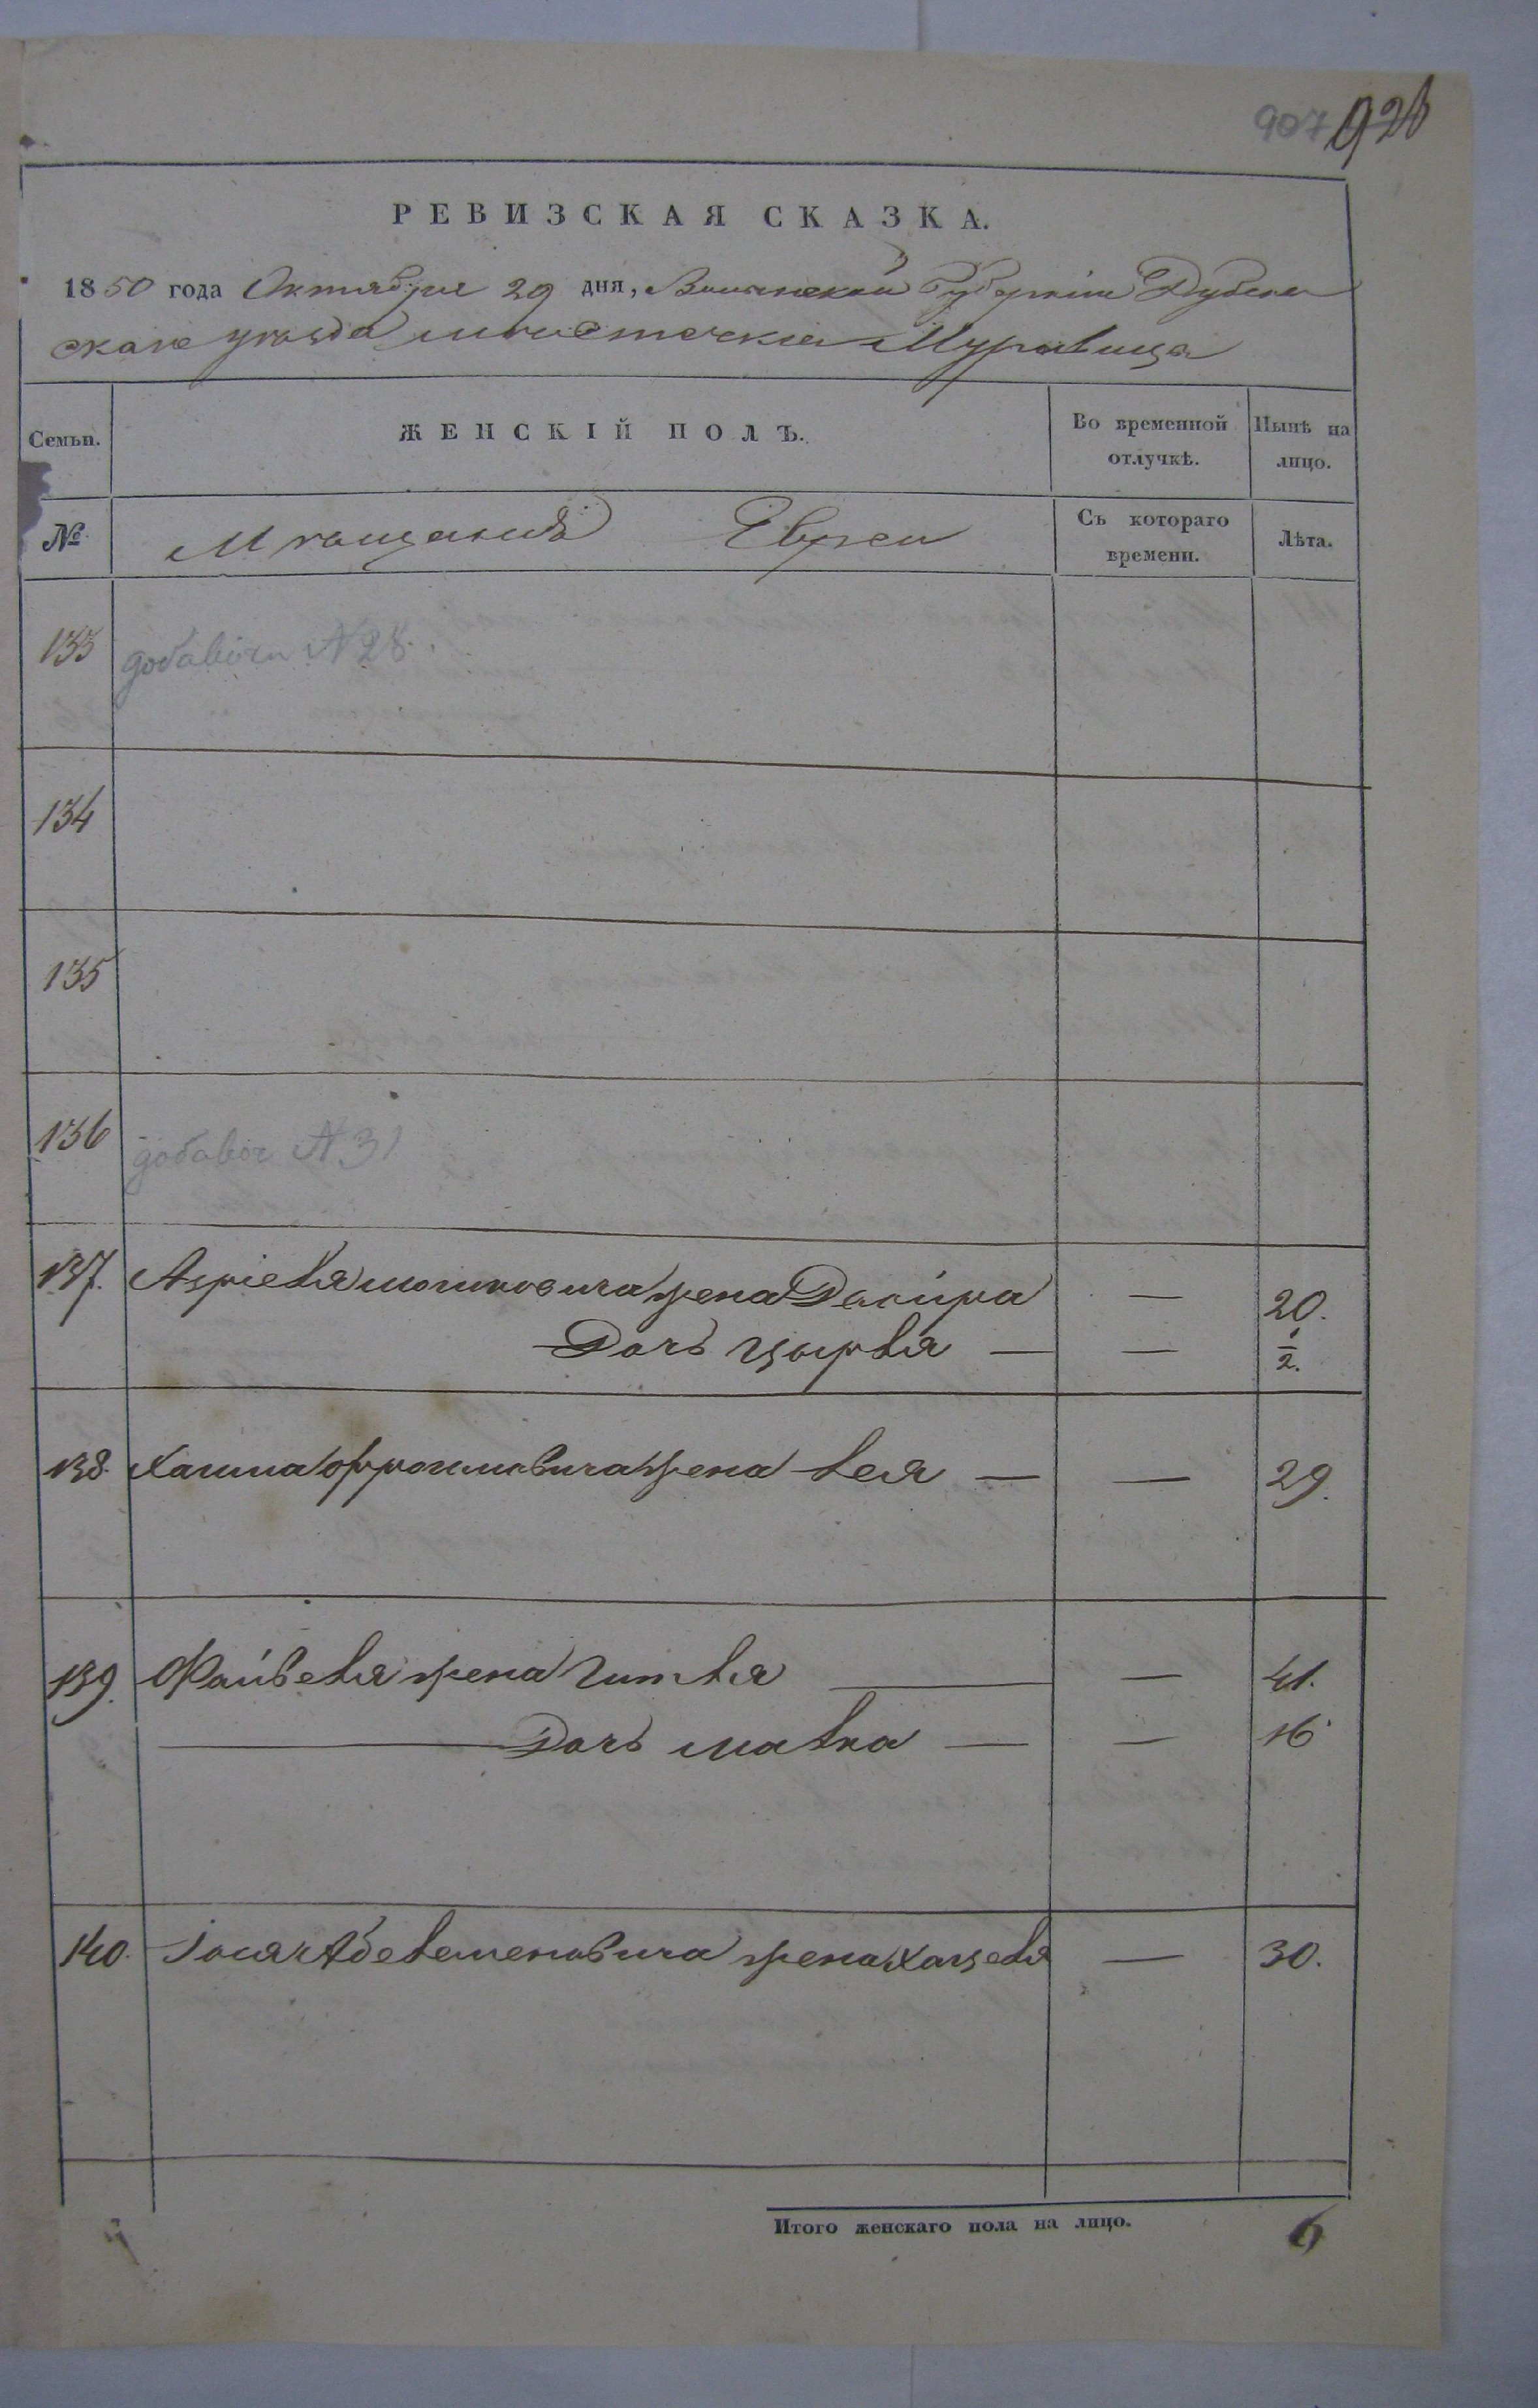 907 928
РЕВИЗСКАЯ СКАЗКА.
1850 года Октября 29 дня, Волынской Губерніи Дубен
скаго уѣзда мѣстечка Муравица
Семьи. ЖЕНСКІЙ ПОЛЪ. Во временной отлучкѣ. Нынѣ на лицо.
№ Мѣщанъ Евреи Съ котораго времени. Лѣта.
133 добавочн N 28.
134
135
136 добавоч N 31
137. Азріеля жена Двойра — 20.
Дочь Цырля — — 1/2.
138. жена Лея — — 29.
139. Файвеля жена Гитля — — 41.
Дочь Малка — — 16
140. Іося жена — 30.
Итого женскаго пола на лицо. 6